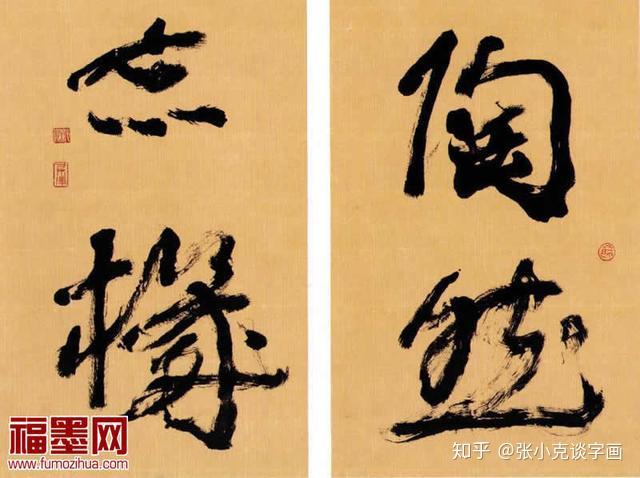 陶然
忘機
福墨网
www.fumozihua.com
知乎 @张小克谈字画